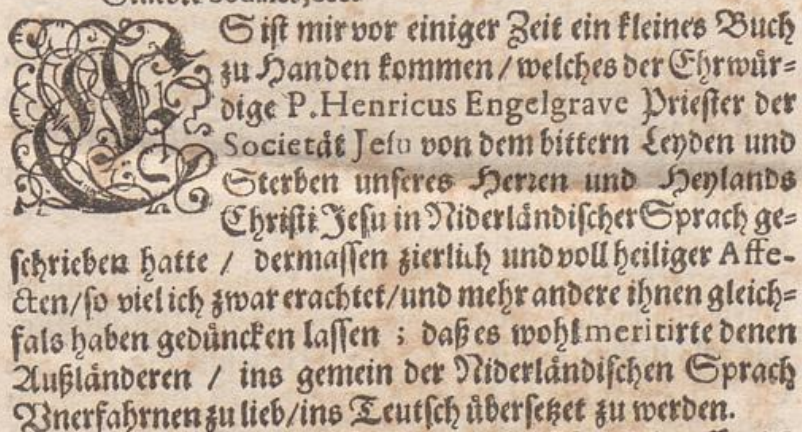 ES ist mir vor einiger Zeit ein kleines Buch
zu Handen kommen / welches der Ehrwür=
dige P. Henricus Engelgrave Priester der
Societät Jesu von dem bittern Leyden und
Sterben unseres Herren und Heylands
Christi Jesu in Niderländischer Sprach ge=
schrieben hatte / dermassen zierlich und voll heiliger Affe-
cten / so viel ich zwar erachtet / und mehr andere ihnen gleich=
fals haben gedüncken lassen ; daß es wohl meritirte denen
Außländeren / ins gemein der Niderländischen Sprach
Vnerfahrnen zu lieb / ins Teutsch übersetzet zu werden.